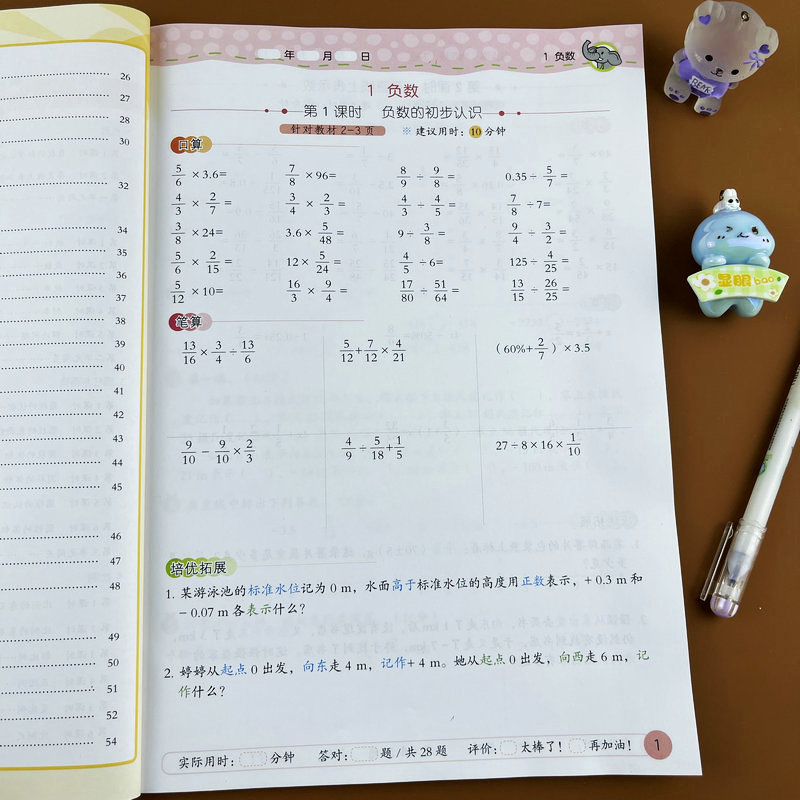 26
27
28
30
32
34
35
36
37
38
39
40
41
42
43
44
45
46
47
48
49
50
51
52
54
年 月 日
1 负数
1 负数
第1课时 负数的初步认识
针对教材2-3页 ※建议用时:10分钟
口算
5/6 ×3.6= 7/8 ×96= 8/9 ÷ 9/8 = 0.35÷ 5/7 =
4/3 × 2/7 = 3/4 × 2/3 = 4/3 ÷ 4/5 = 7/8 ÷7=
3/8 ×24= 3.6× 5/48 = 9÷ 3/8 = 9/4 ÷ 3/2 =
5/6 × 2/15 = 12× 5/24 = 4/5 ÷6= 125÷ 4/25 =
5/12 ×10= 16/3 × 9/4 = 17/80 ÷ 51/64 = 13/15 ÷ 26/25 =
笔算
13/16 × 3/4 ÷ 13/6 5/12 + 7/12 × 4/21 (60%+ 2/7 )×3.5
9/10 − 9/10 × 2/3 4/9 ÷ 5/18 + 1/5 27÷8×16× 1/10
培优拓展
1. 某游泳池的标准水位记为0 m,水面高于标准水位的高度用正数表示,+0.3 m和
−0.07 m各表示什么?
2. 婷婷从起点0出发,向东走4 m,记作+4 m。她从起点0出发,向西走6 m,记
作什么?
实际用时: 分钟 答对: 题/共28题 评价: 太棒了! 再加油!
1
BEAR
显眼bao